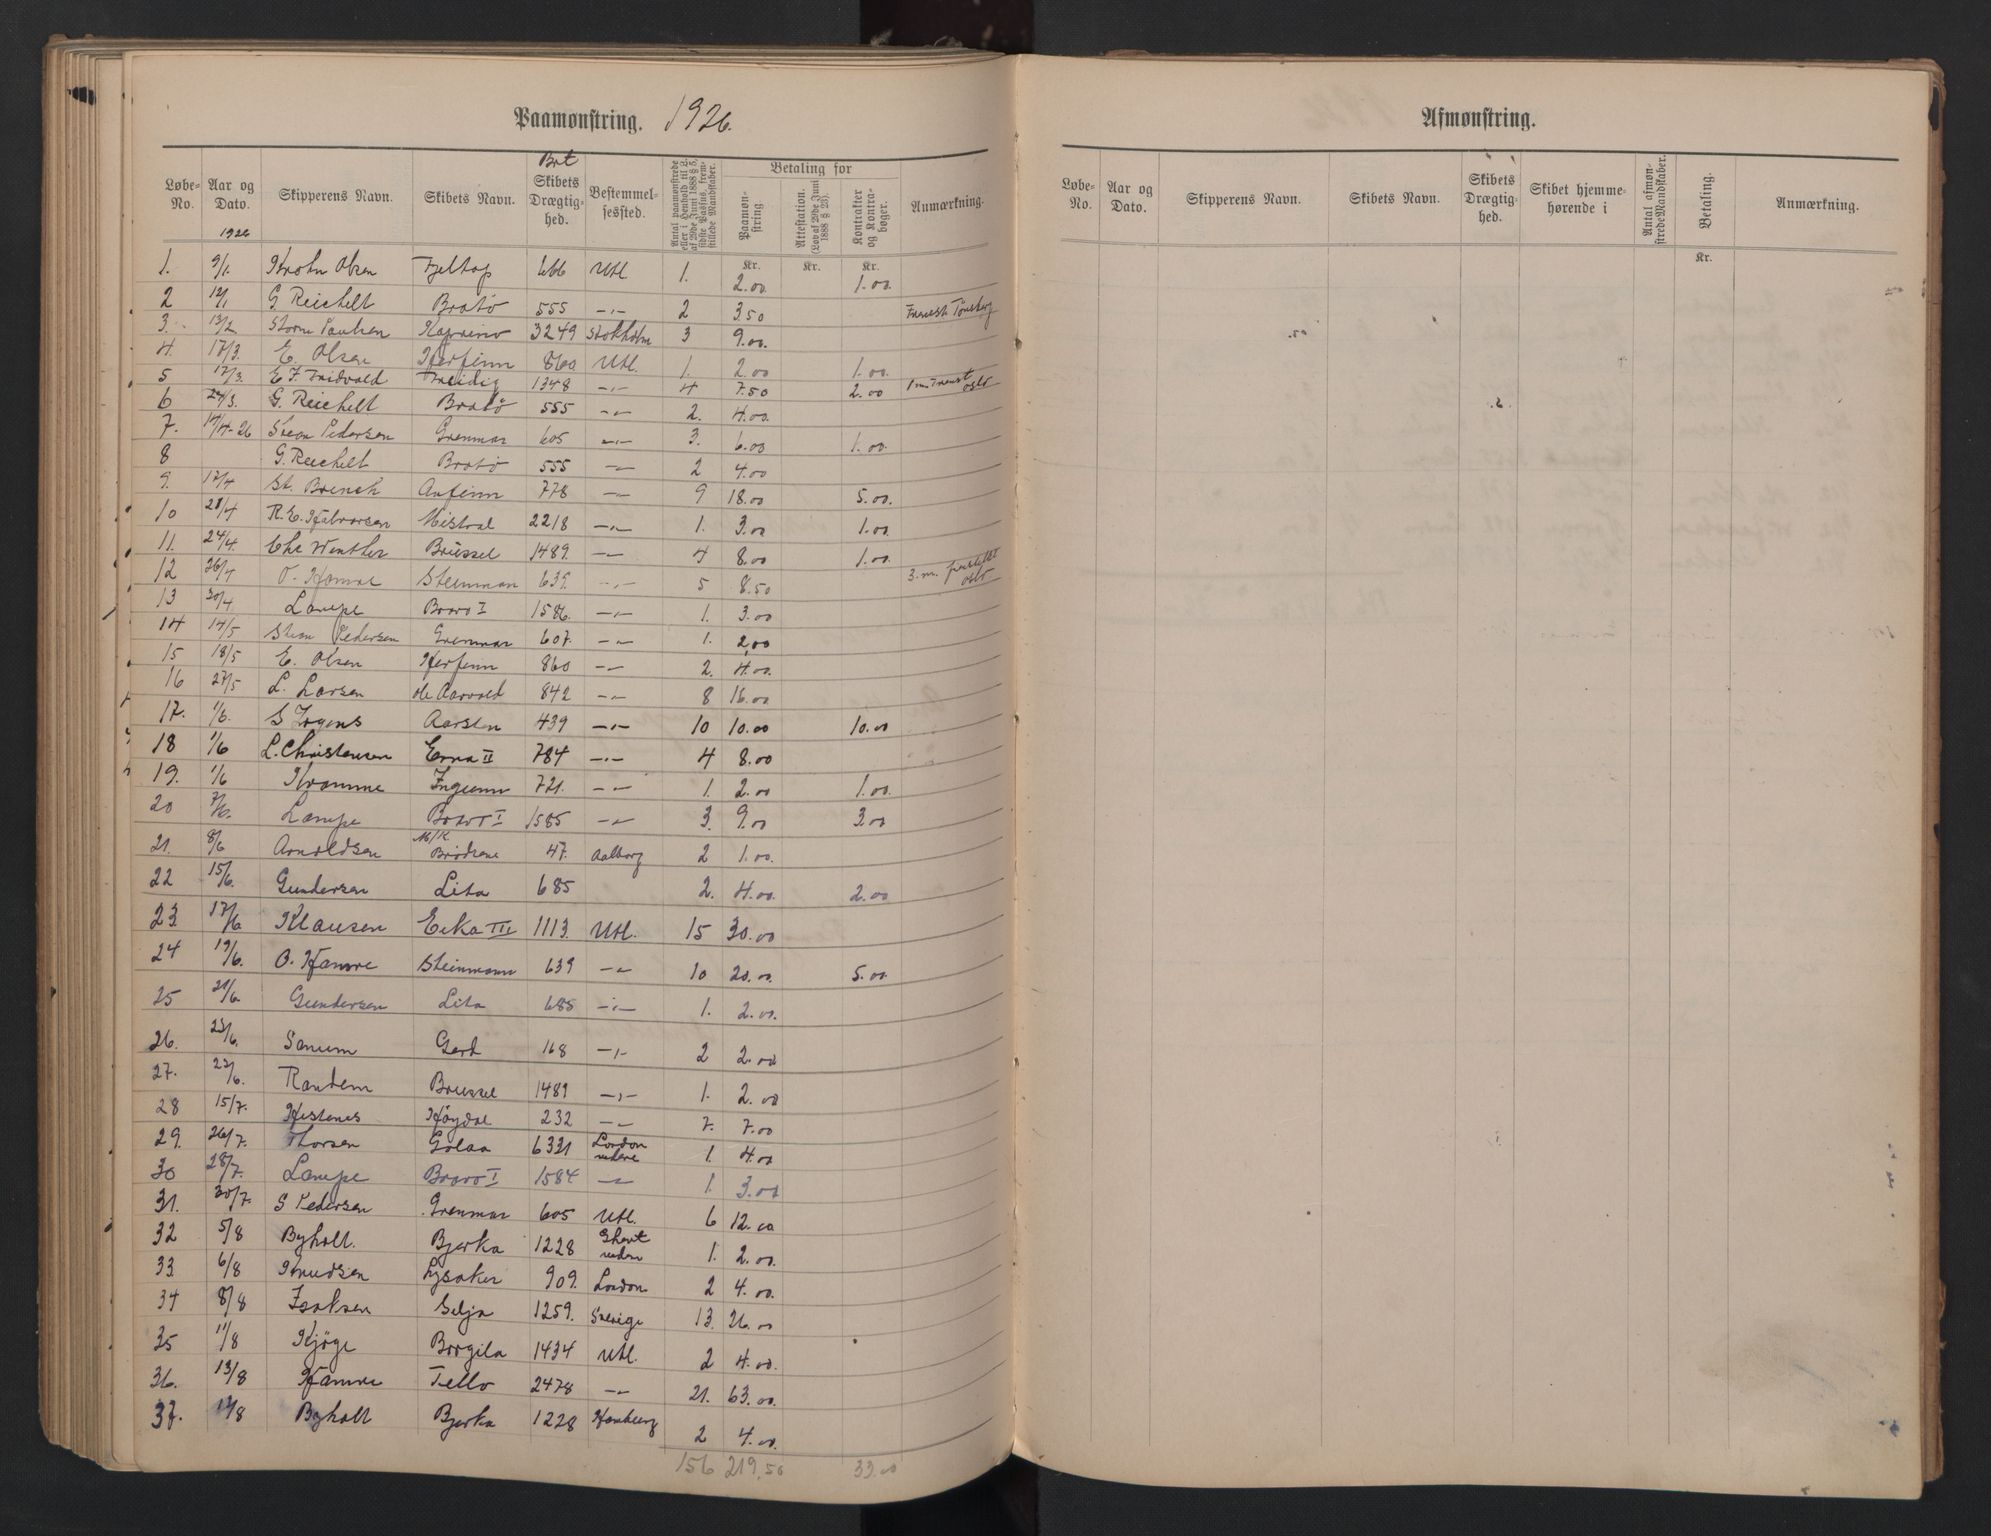 Paamønstring. 1926.
Løbe-No. Aar og Dato. Skipperens Navn. Skibets Navn. Brt Skibets Drægtighed. Bestemmelsessted. Antal paamønstrede eller i Henhold til L. af 29de Juni 1888 § 5, sidste Passus, fremstillede Mandskaber. Betaling for Paamønstring Attestation. (Lov af 29de Juni 1888 § 23). Kontrakter og Kontrabøger. Anmærkning.
1926
Kr. Kr. Kr.
1. 9/1. Krohn Olsen Fjeltop 666 Utl. 1. 2.00. 1.00.
2 12/1 G. Reichelt Bratö 555 -"- 2 3.50 Fremst Tönsberg
3. 13/2 Storm Paulsen 3249 Stokholm 3 9.00.
4. 17/3. E. Olsen Herfinn 860 Utl. 1. 2.00 1.00.
5 17/3. E. F. Freidig 1348 -"- 4 7.50 2.00 1 m. Fremst Oslo
6 24/3. G. Reichelt Bratö 555 -"- 2. 4.00.
7. 14/4-26 Steen Pedersen Grenmar 605 -"- 3. 6.00 1.00.
8 G. Reichelt Bratö 555 -"- 2 4.00
9. 17/4 St. Brenck Anfinn 778 -"- 9 18.00 5.00.
10 21/4 R. E. Halvorsen Mistral 2218 -"- 1. 3.00 1.00.
11. 24/4. Chr Winther Brüssel 1489. -"- 4 8.00 1.00.
12 26/4 O. Hamre Steinmann 639. -"- 5 8.50 3. m. Oslo
13 30/4 Lampe Bravo I 1586. -"- 1. 3.00
14 14/5 Steen Pedersen Grenmar 607. -"- 1. 2,00
15 18/5 E. Olsen Herfinn 860 -"- 2. 4.00.
16 27/5 L. Larsen Ole Aarvold 842 -"- 8 16.00
17. 1/6. S Jrgens Aarsten 439 -"- 10 10.00 10.00
18 1/6 L. Christensen Erna II 784 -"- 4 8.00
19. 1/6 Kramme Ingunn 721. -"- 1. 2.00 1.00.
20 7/6. Lampe Bravo I 1585 -"- 3. 9.00 3.00
21. 8/6 Arnoldsen M/K Brödrene 47. Aalborg 2 1.00.
22 15/6. Gundersen Lita 685 2. 4.00. 2.00
23. 17/6 Klausen Erka III 1113. Utl. 15 30.00
24 19/6. O. Hamre Steinmann 639 -"- 10 20.00. 5.00
25 21/6. Gundersen Lita 685 -"- 1. 2.00.
26. 23/6. Sanum Gerd 168 -"- 2 2.00
27. 23/6. Randem Brussel 1489 -"- 1. 2.00
28 15/7. Hestenes Höydal 232 -"- 7. 7.00
29. 26/7. Thorsen Golaa 6321 London videre 1. 4.00
30 28/7. Lampe Bravo I 1584 -"- 1. 3.00
31. 30/7. S Pedersen Grenmar 605 Utl. 6 12.00
32 5/8 Byholt. Bjerka 1228 Ghent videre 1. 2.00.
33. 6/8 Knudsen Lysaker 909. London 2 4.00.
34 8/8 Isaksen Selja 1259. Sverige 13. 26.00
35 11/8 Kjöge Borgila 1434 Utl. 2 4.00.
36. 13/8 Hamre Tello 2478 -"- 21. 63.00.
37. 17/8 Byholt Bjerka 1228 Hamburg 2 4.00.
156 219,50 33.00
Afmønstring.
Løbe-No. Aar og Dato. Skipperens Navn. Skibets Navn. Skibets Drægtighed. Skibet hjemmehørende i Antal afmønstrede Mandskaber. Betaling. Anmærkning.
Kr.